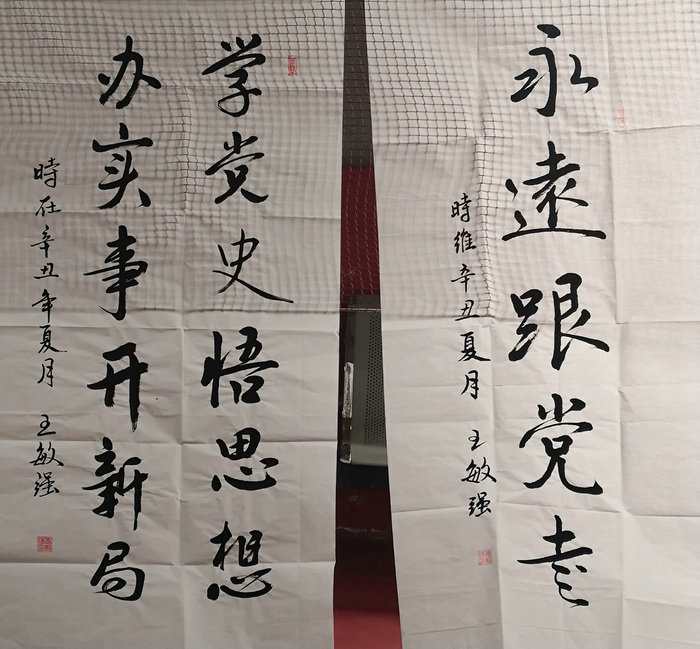 永遠跟党走
時維辛丑夏月 王敏强
学党史悟思想
办实事开新局
時在辛丑年夏月 王敏强